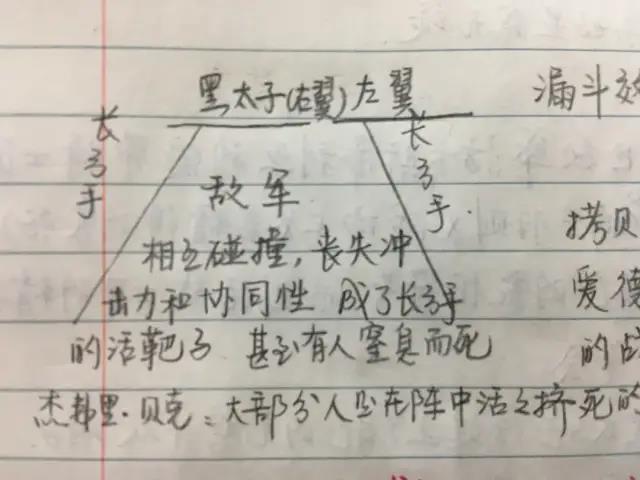 黑太子(右翼) 左翼
漏斗效
长弓手
长弓手
敌军
相互碰撞，丧失冲
击力和协同性 成了长弓手
的活靶子 甚至有人窒息而死
拷贝
爱德
的战
杰弗里·贝克：大部分人是在阵中活活挤死的